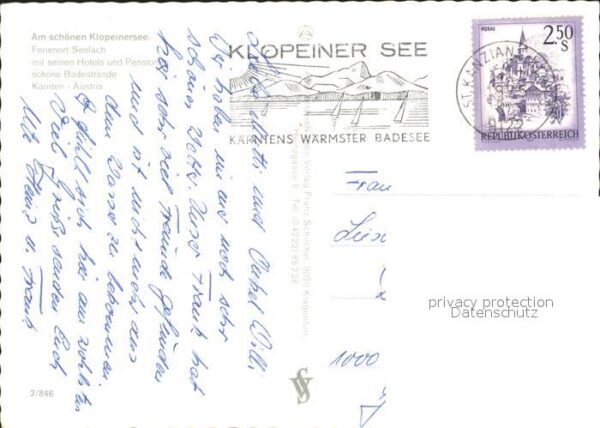 Am schönen Klopeinersee
Ferienort Seelach
mit seinen Hotels und Pension
schöne Badestrände
Kärnten - Austria
KLOPEINER SEE
KÄRNTENS WÄRMSTER BADESEE
ST. KANZIAN
9122
MURAU
2.50
S
REPUBLIK ÖSTERREICH
Verlag Franz Schilcher, 9020 Klagenfurt,
Tel. (0 42 22)
Liebe und Onkel Willi
Wir haben nur noch sehr
schönes Wetter. Unser Frank hat
hier sehr viel Freunde gefunden
und ist nicht mehr aus
dem Wasser zu bekommen.
gefällt sich hier am wohlsten
Viel Grüße senden Euch
u Frank
Frau
1000
privacy protection
Datenschutz
2/846